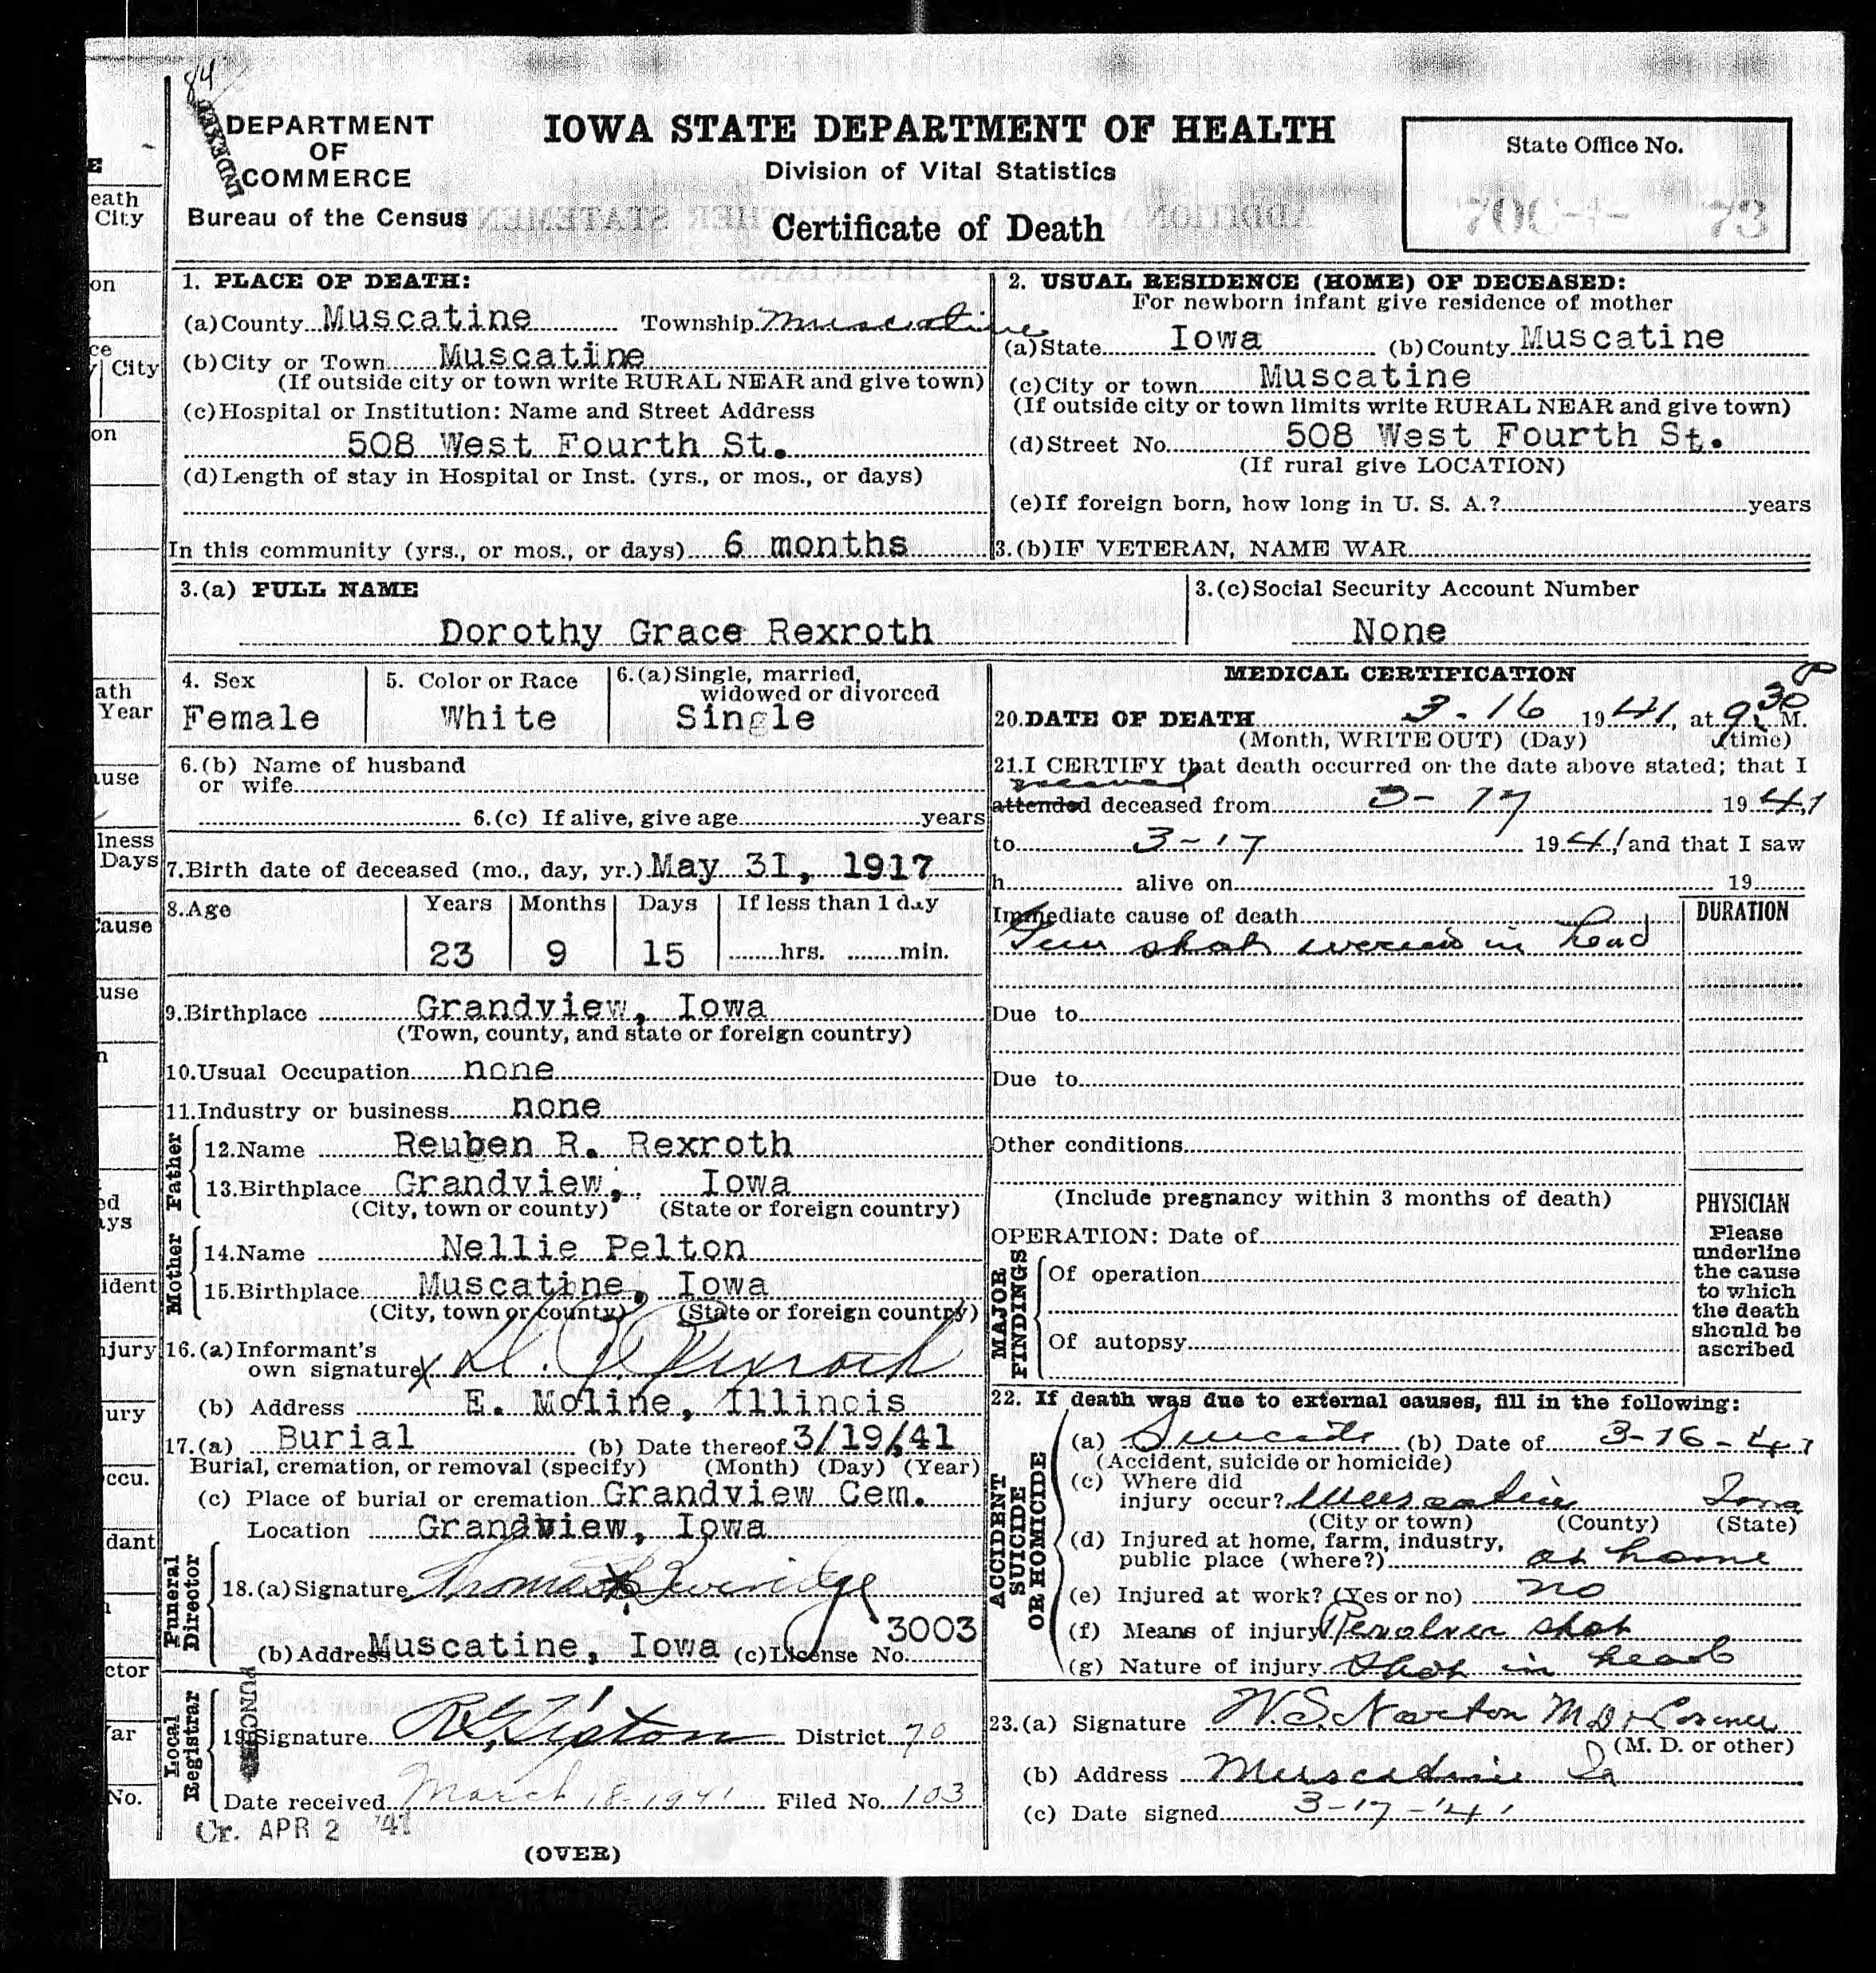 84
INDEXED
DEPARTMENT
OF
COMMERCE
Bureau of the Census
IOWA STATE DEPARTMENT OF HEALTH
Division of Vital Statistics
Certificate of Death
State Office No.
70C-4- 73
1. PLACE OF DEATH:
(a) County Muscatine Township Muscatine
(b) City or Town Muscatine
(If outside city or town write RURAL NEAR and give town)
(c) Hospital or Institution: Name and Street Address
508 West Fourth St.
(d) Length of stay in Hospital or Inst. (yrs., or mos., or days)
In this community (yrs., or mos., or days) 6 months
2. USUAL RESIDENCE (HOME) OF DECEASED:
For newborn infant give residence of mother
(a) State Iowa (b) County Muscatine
(c) City or town Muscatine
(If outside city or town limits write RURAL NEAR and give town)
(d) Street No. 508 West Fourth St.
(If rural give LOCATION)
(e) If foreign born, how long in U. S. A.? years
3. (b) IF VETERAN, NAME WAR
3. (a) FULL NAME
Dorothy Grace Rexroth
3. (c) Social Security Account Number
None
4. Sex
Female
5. Color or Race
White
6. (a) Single, married,
widowed or divorced
Single
6. (b) Name of husband
or wife
6. (c) If alive, give age years
7. Birth date of deceased (mo., day, yr.) May 31, 1917
8. Age Years Months Days If less than 1 day
23 9 15 hrs. min.
9. Birthplace Grandview, Iowa
(Town, county, and state or foreign country)
10. Usual Occupation none
11. Industry or business none
Father
12. Name Reuben R. Rexroth
13. Birthplace Grandview, Iowa
(City, town or county) (State or foreign country)
Mother
14. Name Nellie Pelton
15. Birthplace Muscatine, Iowa
(City, town or county) (State or foreign country)
16. (a) Informant's
own signature X Rexroth
(b) Address E. Moline, Illinois
17. (a) Burial (b) Date thereof 3/19/41
Burial, cremation, or removal (specify) (Month) (Day) (Year)
(c) Place of burial or cremation Grandview Cem.
Location Grandview, Iowa
Funeral Director
18. (a) Signature Thomas
(b) Address Muscatine, Iowa (c) License No. 3003
Local Registrar
19. Signature R. G. Tipton District 70
Date received March 18-1941 Filed No. 103
Cr. APR 2 '41
(OVER)
MEDICAL CERTIFICATION
20. DATE OF DEATH 3-16 1941, at 9:30 P M.
(Month, WRITE OUT) (Day) (time)
21. I CERTIFY that death occurred on the date above stated; that I
attended deceased from 3-17 1941
to 3-17 1941 and that I saw
h alive on 19
Immediate cause of death DURATION
Gun shot wound in head
Due to
Due to
Other conditions
(Include pregnancy within 3 months of death)
OPERATION: Date of
MAJOR FINDINGS
Of operation
Of autopsy
PHYSICIAN
Please
underline
the cause
to which
the death
should be
ascribed
22. If death was due to external causes, fill in the following:
ACCIDENT SUICIDE OR HOMICIDE
(a) Suicide (b) Date of 3-16-41
(Accident, suicide or homicide)
(c) Where did
injury occur? Muscatine Iowa
(City or town) (County) (State)
(d) Injured at home, farm, industry,
public place (where?) at home
(e) Injured at work? (Yes or no) no
(f) Means of injury Revolver shot
(g) Nature of injury Shot in head
23. (a) Signature W. S. Norton M.D. Coroner
(M. D. or other)
(b) Address Muscatine Ia
(c) Date signed 3-17-41